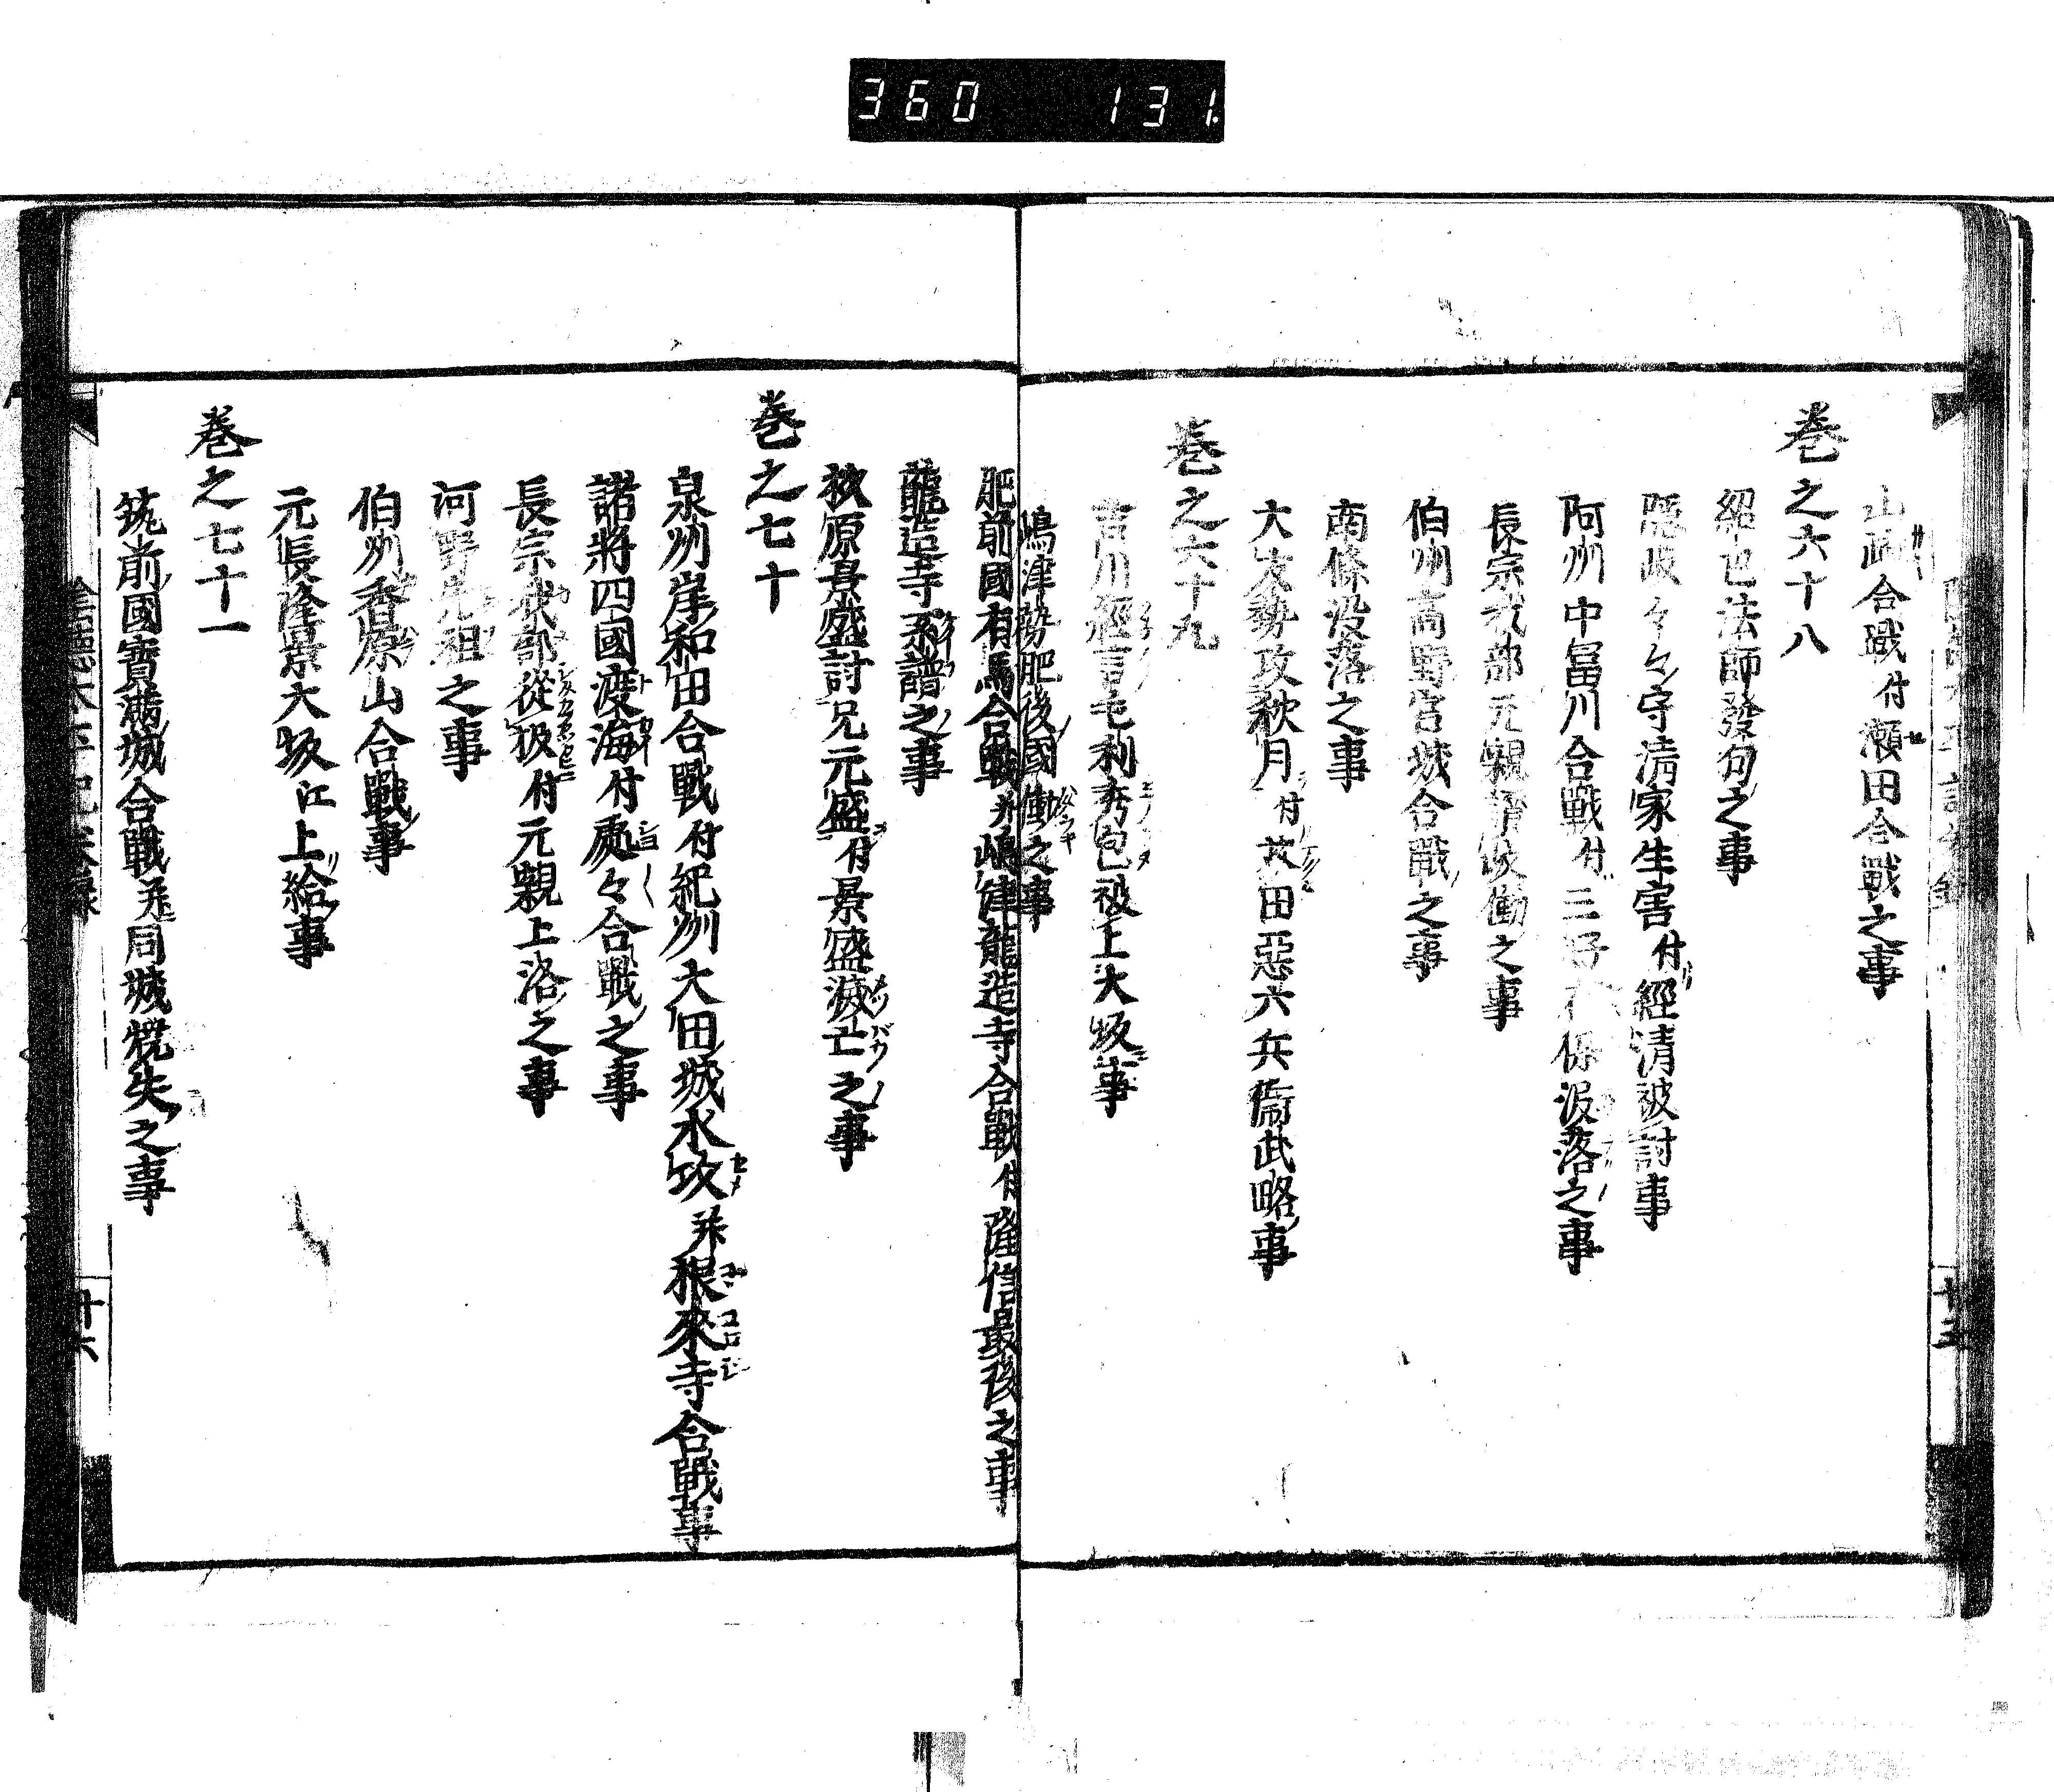 360 131
山崎合戰付瀬田合戰之事
巻之六十八
紹巴法師發句之事
隠岐々々守清家生害付經清被討事
阿州中冨川合戰付三好存保没落之事
長宗我部元親讃岐働之事
伯州高野宮城合戰之事
南條没落之事
大友勢攻秋月付苅田惡六兵衞武略事
巻之六十九
吉川經言毛利秀包被上大坂事
嶋津勢肥後國働之事
肥前國有馬合戰并嶋津龍造寺合戰付隆信最後之事
龍造寺系譜之事
秡原景盛討兄元盛付景盛滅亡之事
巻之七十
泉州岸和田合戰付紀州大田城水攻并根來寺合戰事
諸將四國渡海付處々合戰之事
長宗我部從𢓭付元親上洛之事
河野先祖之事
伯州香原山合戰事
元長隆景大坂江上給事
巻之七十一
筑前國寶満城合戰并同城燒失之事
廿六